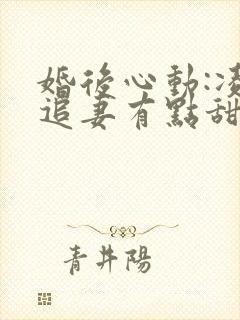 婚後心動:凌
追妻有點甜
青井陽